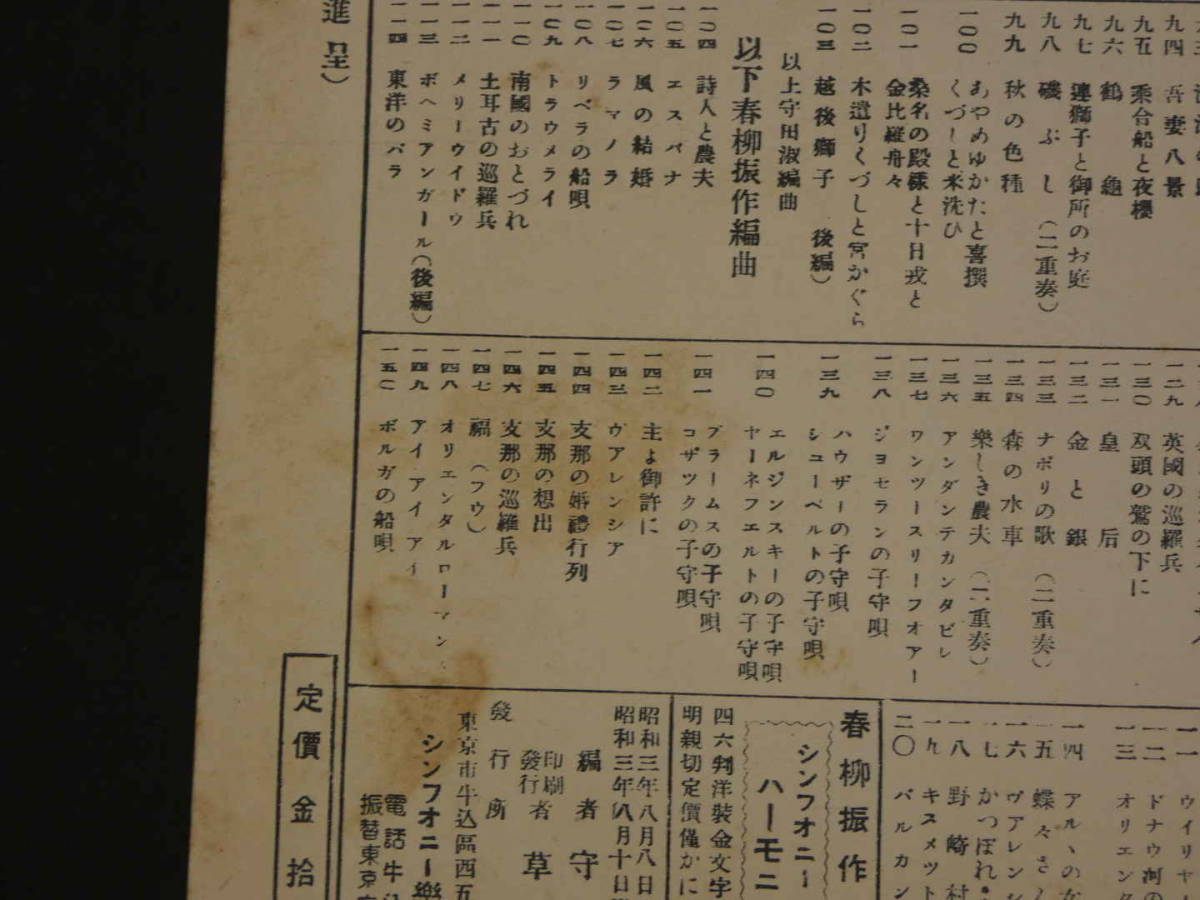 九四 吾妻八景
九五 乘合船と夜櫻
九六 鶴龜
九七 連獅子と御所のお庭
九八 磯ぶし（二重奏）
九九 秋の色種
一〇〇 あやめゆかたと喜撰
くづしと米洗ひ
一〇一 桑名の殿樣と十日戎と
金比羅舟々
一〇二 木遣りくづしと宮かぐら
一〇三 越後獅子 後編）
以上守田淑編曲
以下春柳振作編曲
一〇四 詩人と農夫
一〇五 エスパナ
一〇六 風の結婚
一〇七 ラマノラ
一〇八 リベラの船唄
一〇九 トラウメライ
一一〇 南國のおとづれ
一一一 土耳古の巡羅兵
一一二 メリーウイドウ
一一三 ボヘミアンガール（後編）
一一四 東洋のバラ
進呈）
一二九 英國の巡羅兵
一三〇 双頭の鷲の下に
一三一 皇后
一三二 金と銀
一三三 ナポリの歌（二重奏）
一三四 森の水車
一三五 樂しき農夫（二重奏）
一三六 アンダンテカンタビレ
一三七 ワンツースリーフオアー
一三八 ジヨセランの子守唄
一三九 ハウザーの子守唄
シユーベルトの子守唄
一四〇 エルジンスキーの子守唄
ヤーネフエルトの子守唄
一四一 ブラームスの子守唄
コザツクの子守唄
一四二 主よ御許に
一四三 ヴアレンシア
一四四 支那の婚禮行列
一四五 支那の想出
一四六 支那の巡羅兵
一四七 福（フウ）
一四八 オリエンタルローマン
一四九 アイアイアイ
一五〇 ボルガの船唄
一一 ウイリヤ
一二 ドナウ河の
一三 オリエンタ
一四 アルヽの女
一五 蝶々さん
一六 ヴアレンシ
一七 かつぽれ
一八 野崎村
一九 キスメツト
二〇 バルカン
春柳振作
シンフオニー
ハーモニ
四六判洋裝金文字
明親切定價僅かに
昭和三年八月八日
昭和三年八月十日
編者 守
印刷
發行者 草
發行所
東京市牛込區西五
シンフオニー樂
電話牛込
振替東京
定價金拾